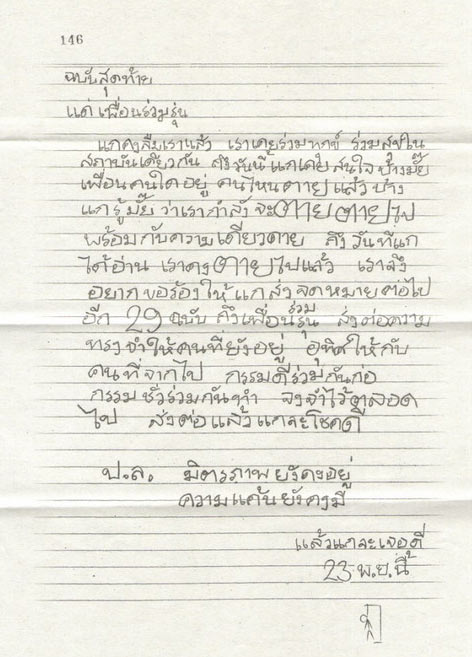 146
ฉบับสุดท้าย
แด่ เพื่อนร่วมรุ่น
แกคงลืมเราแล้ว เราเคยร่วมทุกข์ ร่วมสุขใน
สถาบันเดียวกัน ถึงวันนี้แกเคยสนใจบ้างมั๊ย
เพื่อนคนใดอยู่ คนไหนตายแล้วบ้าง
แกรู้มั๊ย ว่าเรากำลังจะตายตายไป
พร้อมกับความเดียวดาย ถึงวันที่แก
ได้อ่าน เราคงตายไปแล้ว เราจึง
อยากขอร้องให้แกส่งจดหมายต่อไป
อีก 29 ฉบับ ถึงเพื่อนร่วมรุ่น ส่งต่อความ
ทรงจำให้คนที่ยังอยู่ อุทิศให้กับ
คนที่จากไป กรรมดีร่วมกันก่อ
กรรมชั่วร่วมกันทำ จงจำไว้ตลอด
ไป ส่งต่อแล้วแกจะโชคดี
ป.ล. มิตรภาพยังคงอยู่
ความแค้นยังคงมี
แล้วแกจะเจอดี
23 พ.ย.นี้